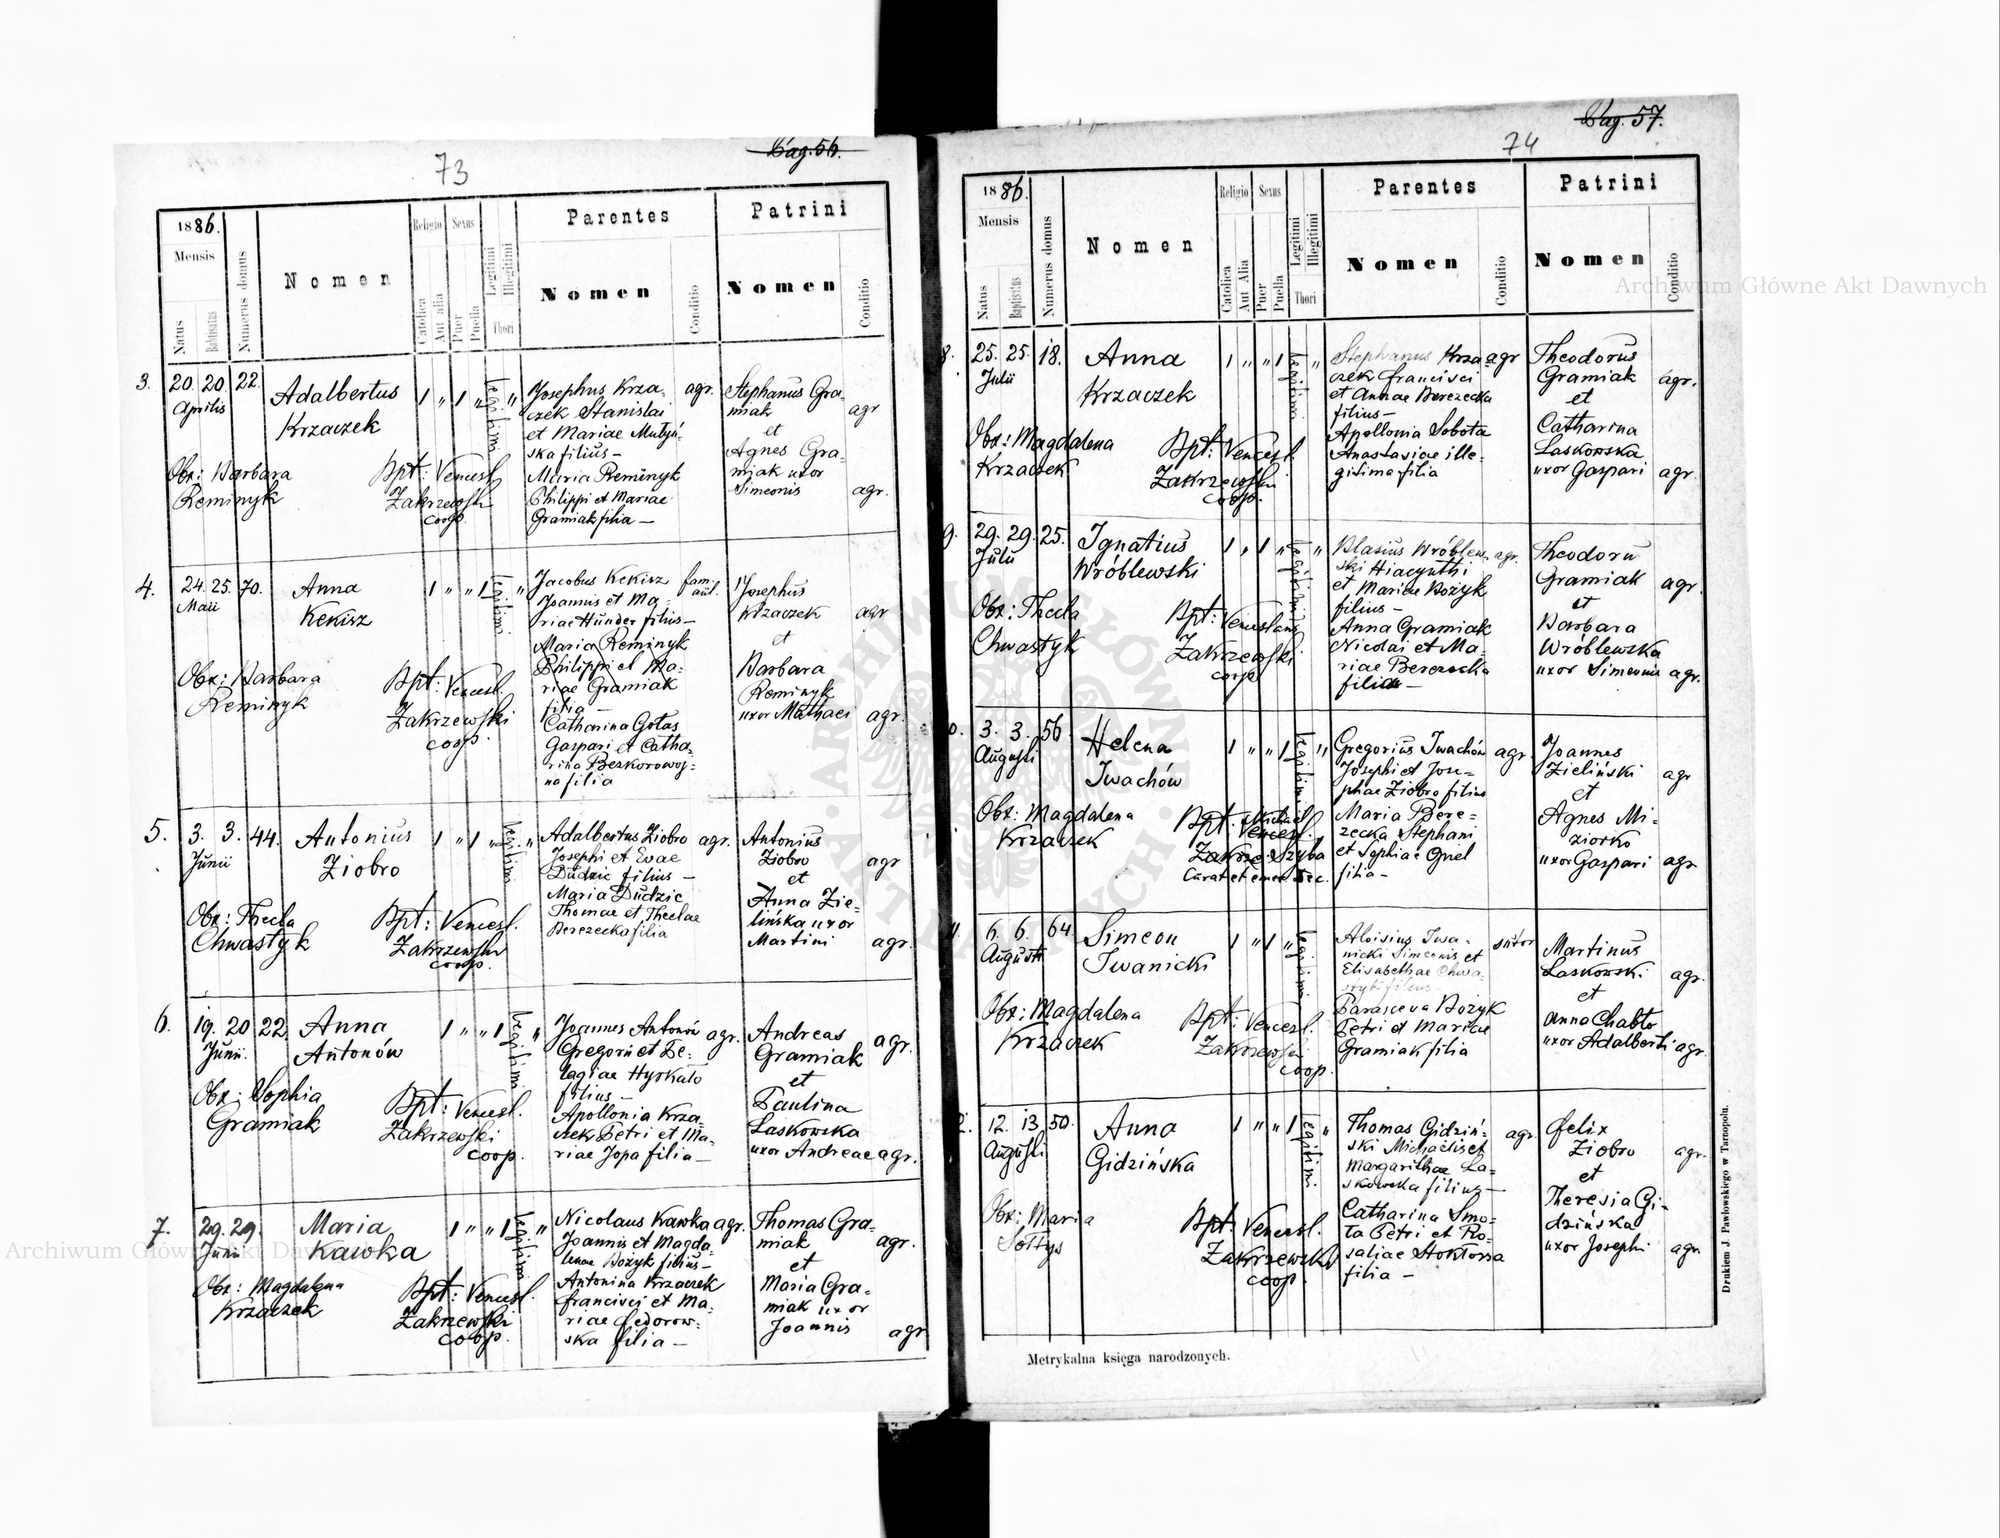 73
Pag. 56.
1886.
Mensis
Natus
Babtisatus
Numerus domus
Nomen
Religio
Catolica
Aut alia
Sexus
Puer
Puella
Legitimi
Illegitimi
Thori
Parentes
Nomen
Conditio
Patrini
Nomen
Conditio
3.
20. 20. 22.
Aprilis
Adalbertus
Krzaczek
1 " 1 "
Legitimi
"
Josephus Krza-
czek Stanislai
et Mariae
ska filius -
Maria Reminyk
Philippi et Mariae
Gramiak filia -
agr.
Stephanus Gra-
miak
et
Agnes Gra-
miak uxor
Simeonis
agr
agr.
Obx: Barbara
Reminyk
Bpt: Vencesl.
Zakrzewski
coop.
4.
24. 25. 70.
Maii
Anna
Kekisz
1 " " 1
Legitimi
"
Jacobus Kekisz
Joannis et Ma-
riae Hunder filius -
Maria Reminyk
Philippi et Ma-
riae Gramiak
filia -
Catharina Gołas
Gaspari et Catha-
rina Bezkorowoj-
na filia
fam.
aul.
Josephus
Krzaczek
et
Barbara
Reminyk
uxor Mathaei
agr
agr.
Obx: Barbara
Reminyk
Bpt: Vencesl.
Zakrzewski
coop.
5.
3. 3. 44.
Junii
Antonius
Ziobro
1 " 1 "
Legitimi
"
Adalbertus Ziobro
Josephi et Evae
Dudzic filius -
Maria Dudzic
Thomae et Theclae
Berezecka filia
agr.
Antonius
Ziobro
et
Anna Zie-
lińska uxor
Martini
agr
agr.
Obx: Thecla
Chwastyk
Bpt: Vencesl.
Zakrzewski
coop.
6.
19. 20 22.
Junii.
Anna
Antonów
1 " " 1
Legitimi
"
Joannes Antonów
Gregorii et Pe-
lagiae Hyskało
filius -
Apollonia Krza-
czek Petri et Ma-
riae Jopa filia -
agr.
Andreas
Gramiak
et
Paulina
Laskowska
uxor Andreae
agr.
agr.
Obx: Sophia
Gramiak
Bpt: Vencesl.
Zakrzewski
coop.
7.
29. 29.
Junii
Maria
Kawka
1 " " 1
Legitimi
"
Nicolaus Kawka
Joannis et Magda-
lenae Bożyk filius -
Antonina Krzaczek
Francisci et Ma-
riae Fedorow-
ska filia -
agr.
Thomas Gra-
miak
et
Maria Gra-
miak uxor
Joannis
agr.
agr
Obx: Magdalena
Krzaczek
Bpt: Vencesl.
Zakrzewski
coop.
74
Pag. 57.
1886.
Mensis
Natus
Baptisatus
Numerus domus
Nomen
Religio
Catolica
Aut Alia
Sexus
Puer
Puella
Legitimi
Illegitimi
Thori
Parentes
Nomen
Conditio
Patrini
Nomen
Conditio
8.
25. 25. 18.
Julii
Anna
Krzaczek
1 " " 1
Legitimi
"
Stephanus Krza-
czek Francisci
et Annae Berezecka
filius -
Apollonia Sobota
Anastasiae ille-
gitima filia
agr
Theodorus
Gramiak
et
Catharina
Laskowska
uxor Gaspari
agr.
agr.
Obx: Magdalena
Krzaczek
Bpt: Vencesl.
Zakrzewski
coop.
9.
29. 29. 25.
Julii
Ignatius
Wróblewski
1 " 1 "
Legitimi
"
Blasius Wróblew-
ski Hiacynthi
et Mariae Bożyk
filius -
Anna Gramiak
Nicolai et Ma-
riae Berezecka
filia -
agr.
Theodorus
Gramiak
et
Barbara
Wróblewska
uxor Simeonis
agr.
agr.
Obx: Thecla
Chwastyk
Bpt: Venceslaus
Zakrzewski
coop
3. 3. 56.
Augusti
Helena
Iwachów
1 " " 1
Legitimi
"
Gregorius Iwachów
Josephi et Jose-
phae Ziobro filius
Maria Bere-
zecka Stephani
et Sophiae Gnel
filia -
agr.
Joannes
Zieliński
et
Agnes Mi-
ziorko
uxor Gaspari
agr
agr
Obx: Magdalena
Krzaczek
Bpt: Michael
Vencesl.
Zakrze Szyba
Curat et emer Dec.
6. 6. 64
Augusti
Simeon
Iwanicki
1 " 1 "
Legitimi
Aloisius Iwa-
nicki Simeonis et
Elisabethae Chwa-
styk filius
Parasceva Bożyk
Petri et Mariae
Gramiak filia
sutor
Martinus
Laskowski
et
Anna Chabło
uxor Adalberti
agr.
agr.
Obx: Magdalena
Krzaczek
Bpt: Vencesl.
Zakrzewski
coop.
12. 13. 50.
Augusti
Anna
Gidzińska
1 " " 1
Legitimi
"
Thomas Gidziń-
ski Michaelis et
Margarithae La-
skowska filius -
Catharina Smo-
ta Petri et Ro-
saliae Stoktossa
filia -
agr.
Felix
Ziobro
et
Theresia Gi-
dzińska
uxor Josephi
agr.
agr.
Obx: Maria
Sołtys
Bpt: Vencesl.
Zakrzewski
coop.
Metrykalna księga narodzonych.
Drukiem J. Pawłowskiego w Tarnopolu.
Archiwum Główne Akt Dawnych
Archiwum Główne Akt Dawnych
ARCHIWUM GŁÓWNE AKT DAWNYCH